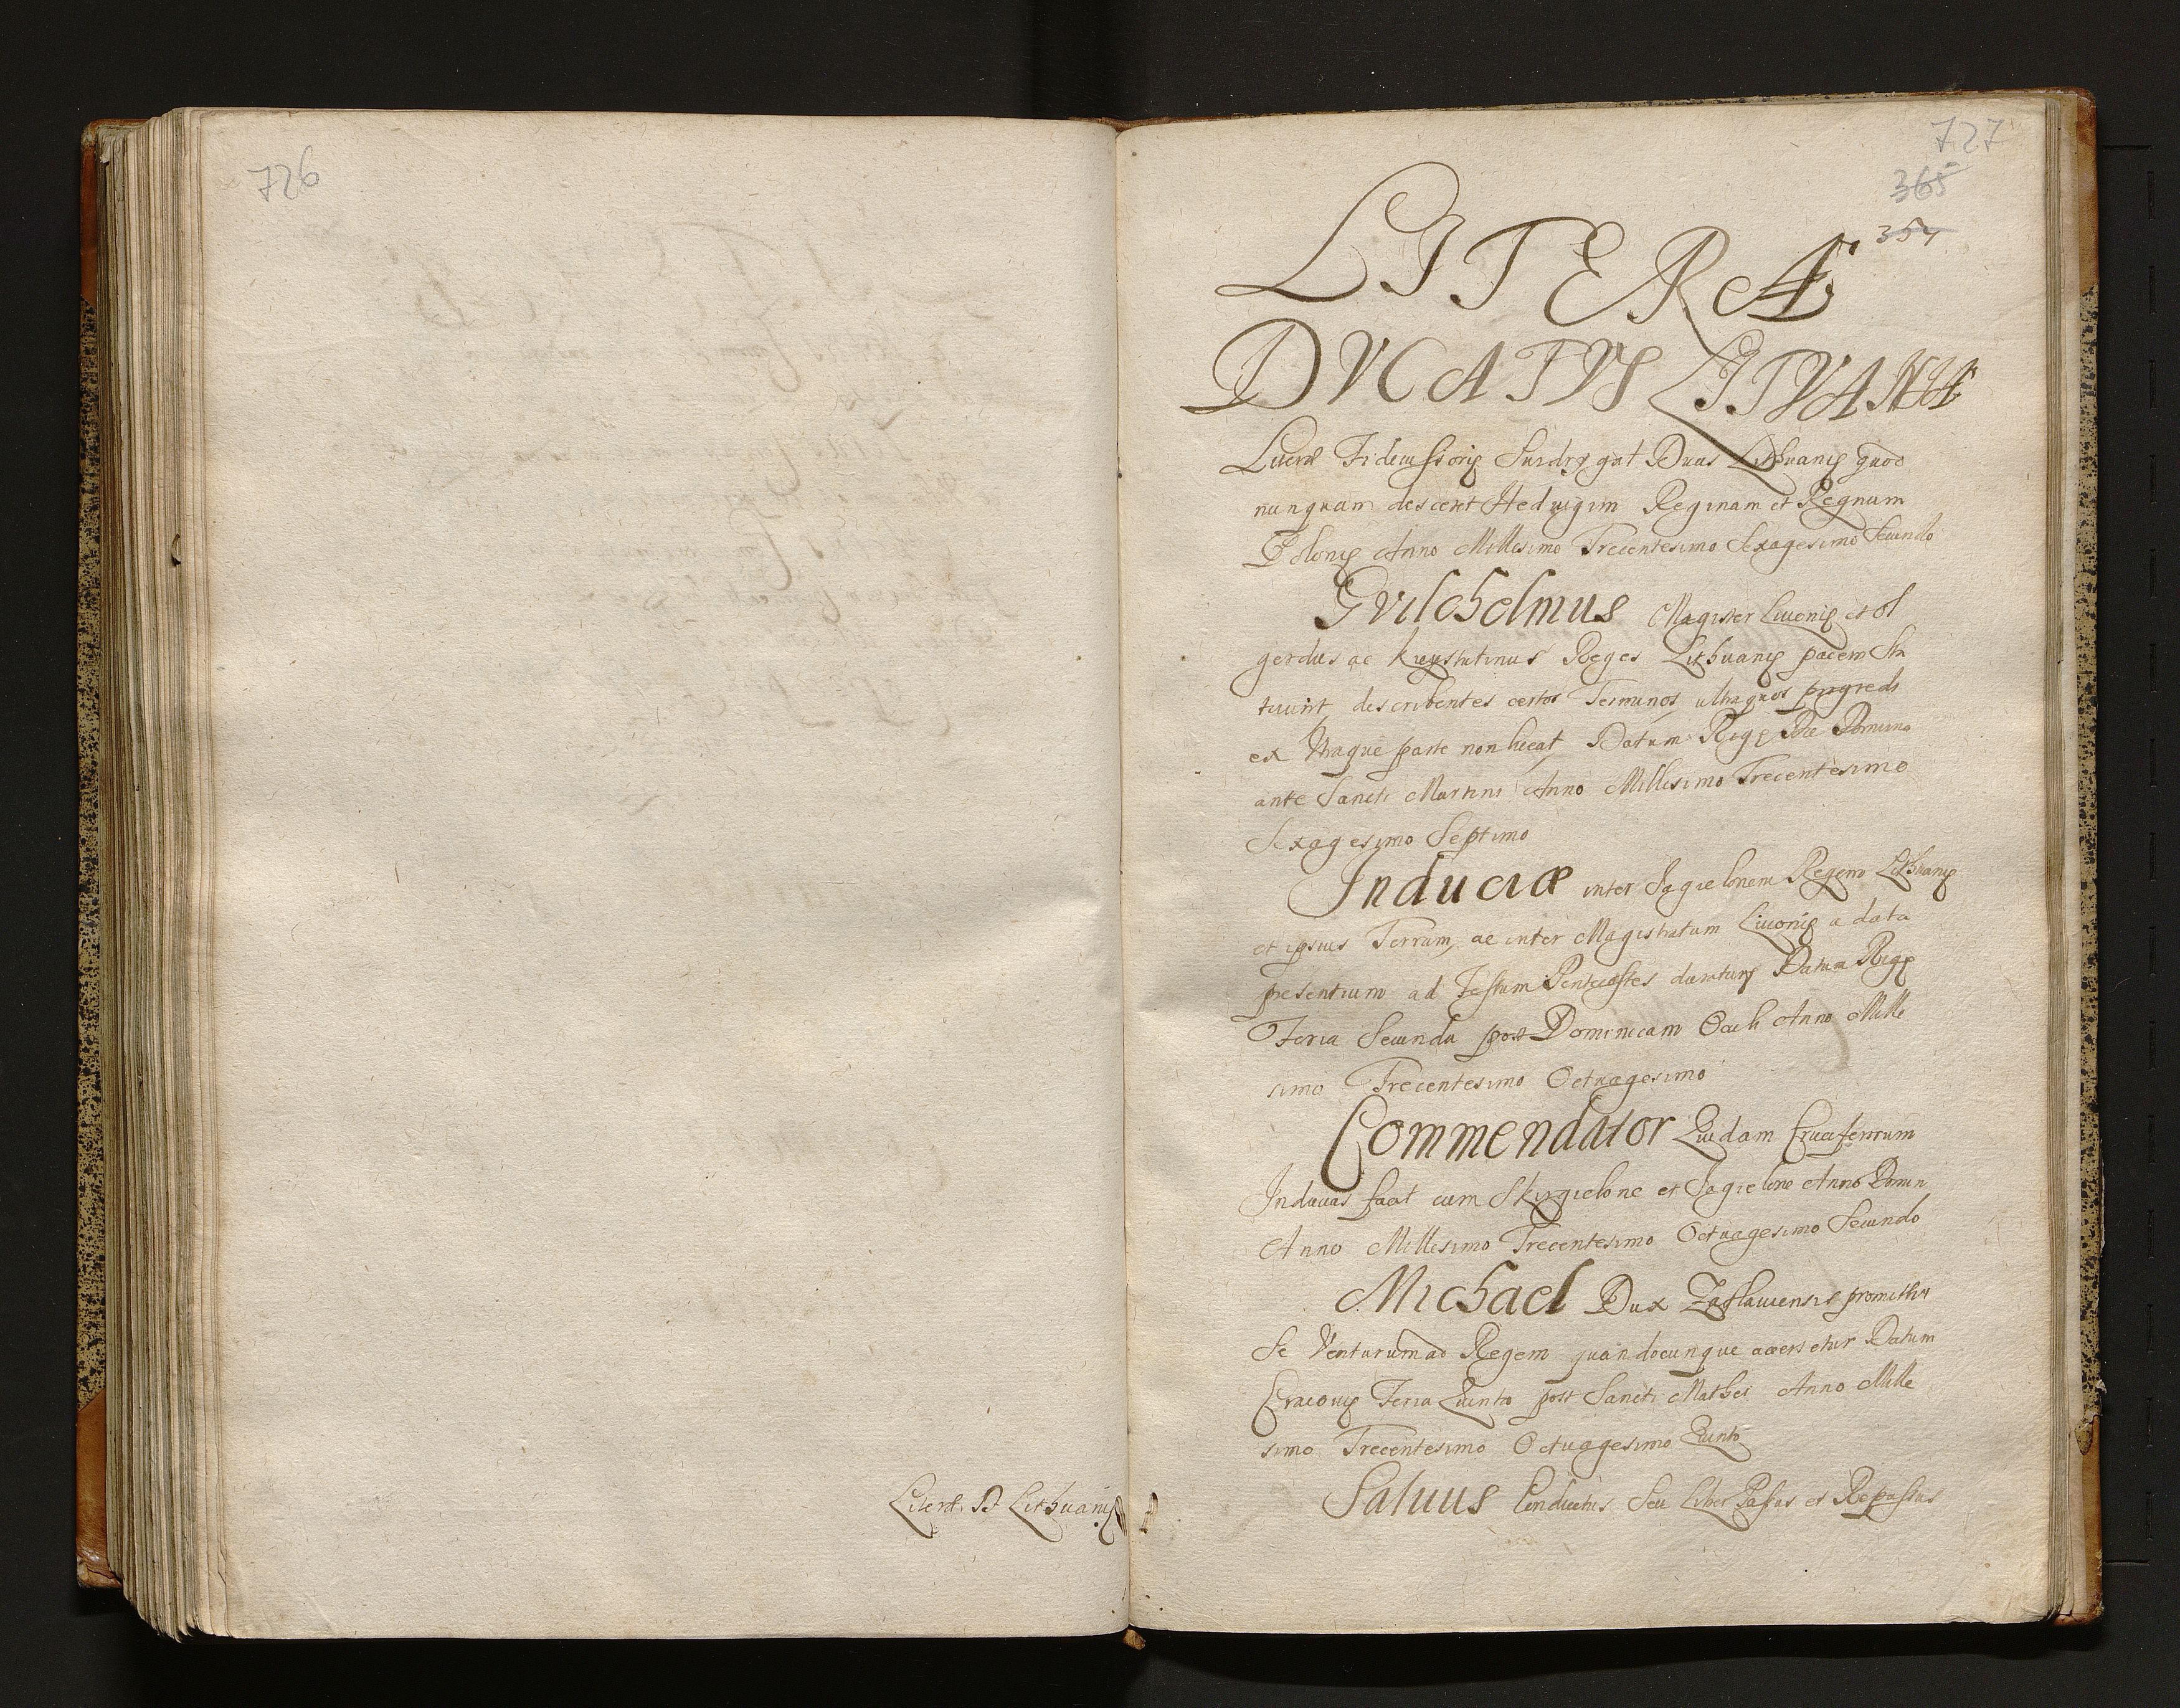 726
Literæ D Lithuanię
727
365
354
LITERÆ
DVCATVS LITVANIÆ
Literæ Fideiussorię Suidrygal Ducis Lithuanię quod
nunquam desceret Hedvigim Reginam et Regnum
Polonię Anno Millesimo Trecentesimo Sexagesimo Secundo
Gvilchelmus Magister Livonię et Ol
gerdus ac Kieystutinus Reges Lithuanię pacem Sta
tuunt describentes certos Terminos, ultra quos progredi
ex Utraque parte non liceat, Datum Rigę Die Domino
ante Sancti Martini Anno Millesimo Trecentesimo
Sexagesimo Septimo
Induciæ inter Jagielonem Regem Lithuanię
et ipsius Terram, ac inter Magistratum Livonię a data
presentium ad Festum Pentecostes duraturę Datum Rigę
Feria Secunda post Dominicam Oculi Anno Mille
simo Trecentesimo Octuagesimo
Commendator Quidam Cruciferrum
Inducias facit cum Skirgielone et Jagielone Anno Domin
Anno Millesimo Trecentesimo Octuagesimo Secundo
Michael Dux Zaslauiensis promittit
Se Venturum ad Regem quandocunque accersetur Datum
Cracovię Feria Quinta post Sancti Mathei Anno Mille
simo Trecentesimo Octuagesimo Quinto
Saluus Conductus Seu Liber Passus et Repassus